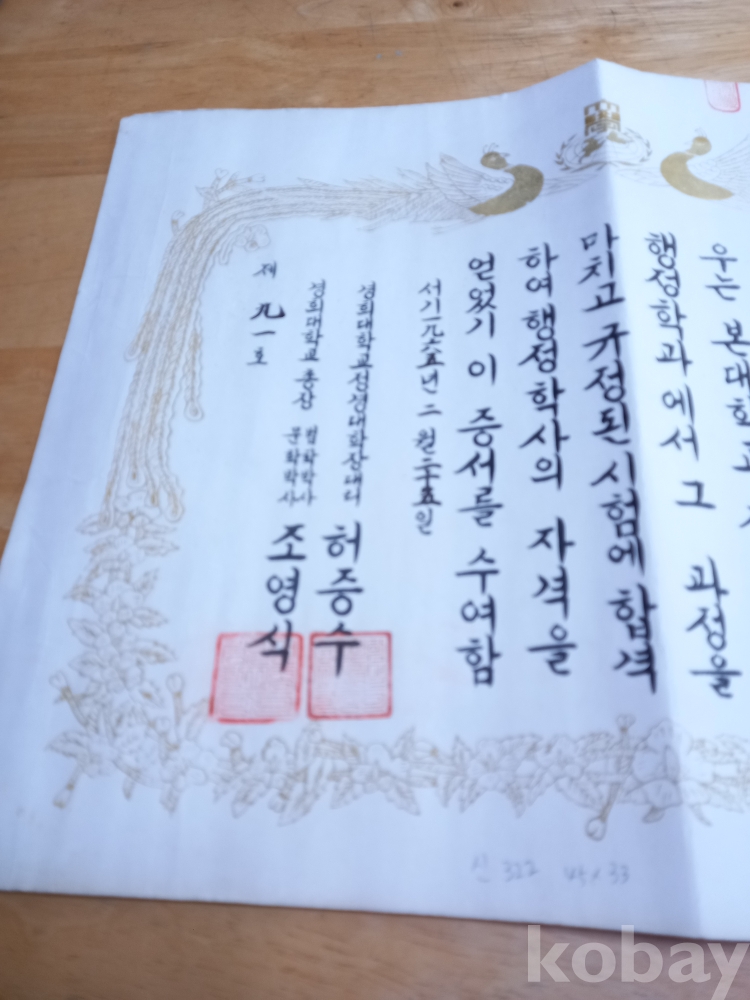 우는 본대학교
행정학과에서 그 과정을
마치고 규정된 시험에 합격
하여 행정학사의 자격을
얻었기 이 증서를 수여함
서기一九六五년 二월 二十五일
경희대학교 대학장대리 허증수
경희대학교 총장 법학학사 문학학사 조영식
제 九一호
신 322 45×33
kobay